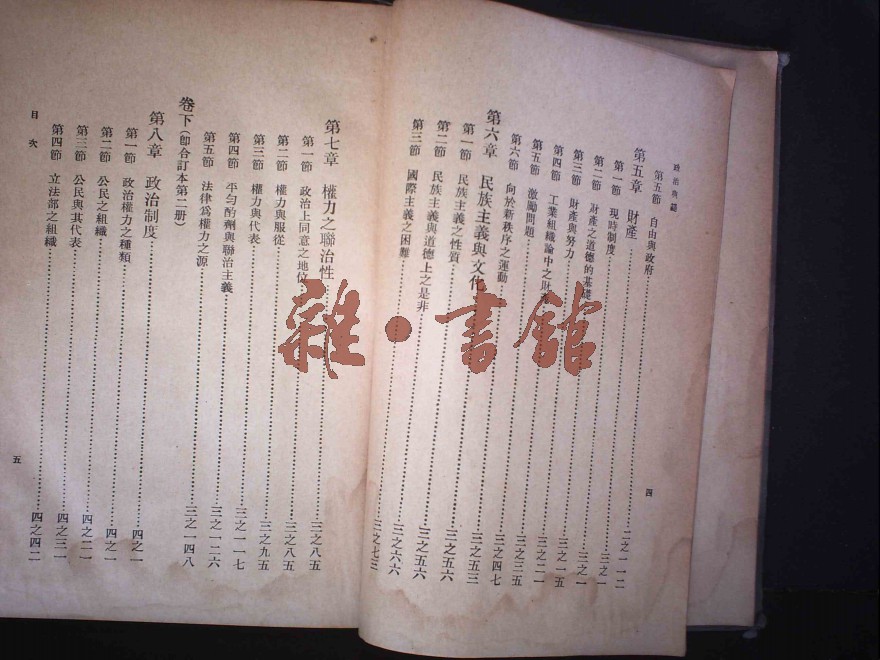 政治典範
第五節 自由與政府……二之一一二
第五章 財產……三之一
第一節 現時制度……三之一
第二節 財產之道德的基礎……三之一五
第三節 財產與努力……三之二一
第四節 工業組織論中之財產……三之三五
第五節 激勵問題
第六節 向於新秩序之運動……三之四七
第六章 民族主義與文化……三之五三
第一節 民族主義之性質……三之五六
第二節 民族主義與道德上之是非……三之五六
第三節 國際主義之困難……三之六六
三之七三
四
第七章 權力之聯治性……三之八五
第一節 政治上同意之地位……三之八五
第二節 權力與服從……三之九五
第三節 權力與代表……三之一一七
第四節 平勻酌劑與聯治主義……三之一二六
第五節 法律爲權力之源……三之一四八
卷下(卽合訂本第二册)
第八章 政治制度……四之一
第一節 政治權力之種類……四之一
第二節 公民之組織……四之二一
第三節 公民與其代表……四之三一
第四節 立法部之組織……四之四二
目次
五
雜·書館